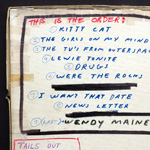 THIS IS THE ORDER:
① KITTY CAT
② THE GIRLS ON MY MIND
③ THE TV'S FROM OUTERSPACE
④ LEWIE TONITE
⑤ DRUGS
⑥ WERE THE ROCKS
⑦ I WANT THAT DATE
⑧ NEWS LETTER
WENDY MAINE
TAILS OUT